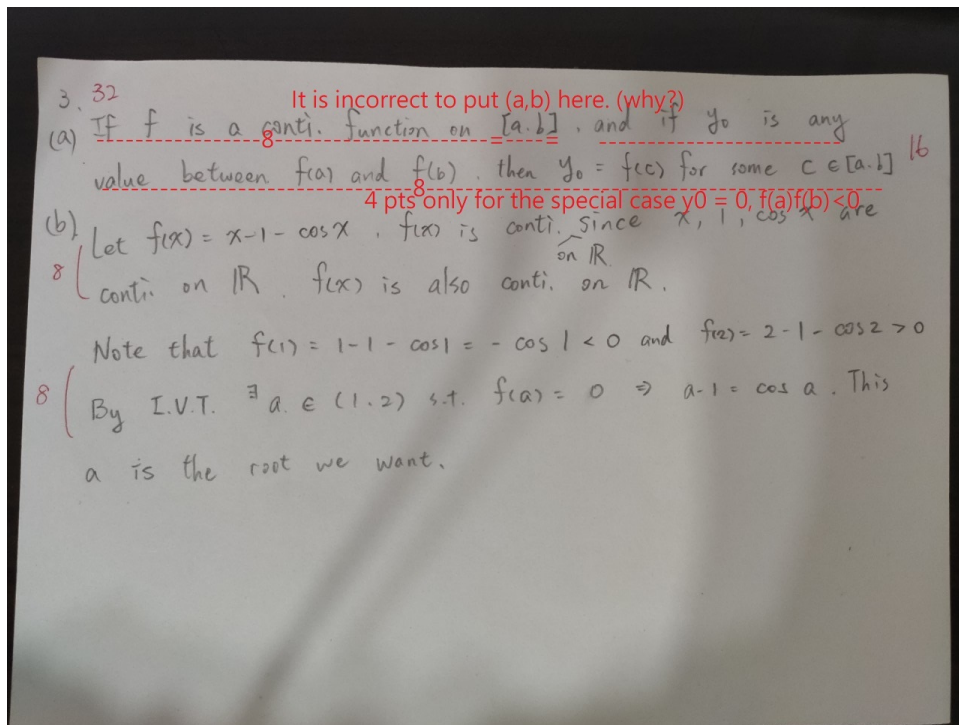 3. 32
It is incorrect to put (a,b) here. (why?)
(a) If f is a conti. function on [a.b], and if y₀ is any
8
16
value between f(a) and f(b). then y₀ = f(c) for some c ∈ [a.b]
8
4 pts only for the special case y0 = 0, f(a)f(b)<0
(b) Let f(x) = x-1-cosx, f(x) is conti. since x, 1, cos x are
on ℝ
8
conti. on ℝ. f(x) is also conti. on ℝ.
Note that f(1) = 1-1-cos1 = -cos 1 < 0 and f(2) = 2-1-cos2 > 0
8
By I.V.T. ∃ a ∈ (1.2) s.t. f(a) = 0 ⇒ a-1 = cos a. This
a is the root we want.